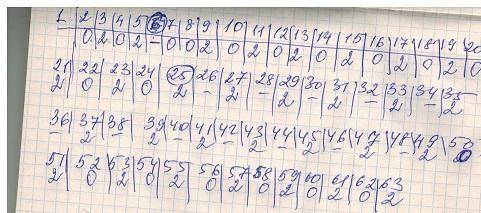 1 | 2 | 3 | 4 | 5 | 6 | 7 | 8 | 9 | 10 | 11 | 12 | 13 | 14 | 15 | 16 | 17 | 18 | 19 | 20
| 0 | 2 | 0 | 2 | - | 0 | 0 | 2 | 0 | 2 | 0 | 2 | 0 | 2 | 0 | 2 | 0 | 2 | 0
21 | 22 | 23 | 24 | 25 | 26 | 27 | 28 | 29 | 30 | 31 | 32 | 33 | 34 | 35
2 | 0 | 2 | 0 | 2 | - | 2 | - | 2 | - | 2 | - | 2 | - | 2
36 | 37 | 38 | 39 | 40 | 41 | 42 | 43 | 44 | 45 | 46 | 47 | 48 | 49 | 50
- | 2 | - | 2 | - | 2 | - | 2 | - | 2 | - | 2 | - | 2 | 0
51 | 52 | 53 | 54 | 55 | 56 | 57 | 58 | 59 | 60 | 61 | 62 | 63
2 | 0 | 2 | 0 | 2 | 0 | 2 | 0 | 2 | 0 | 2 | 0 | 2